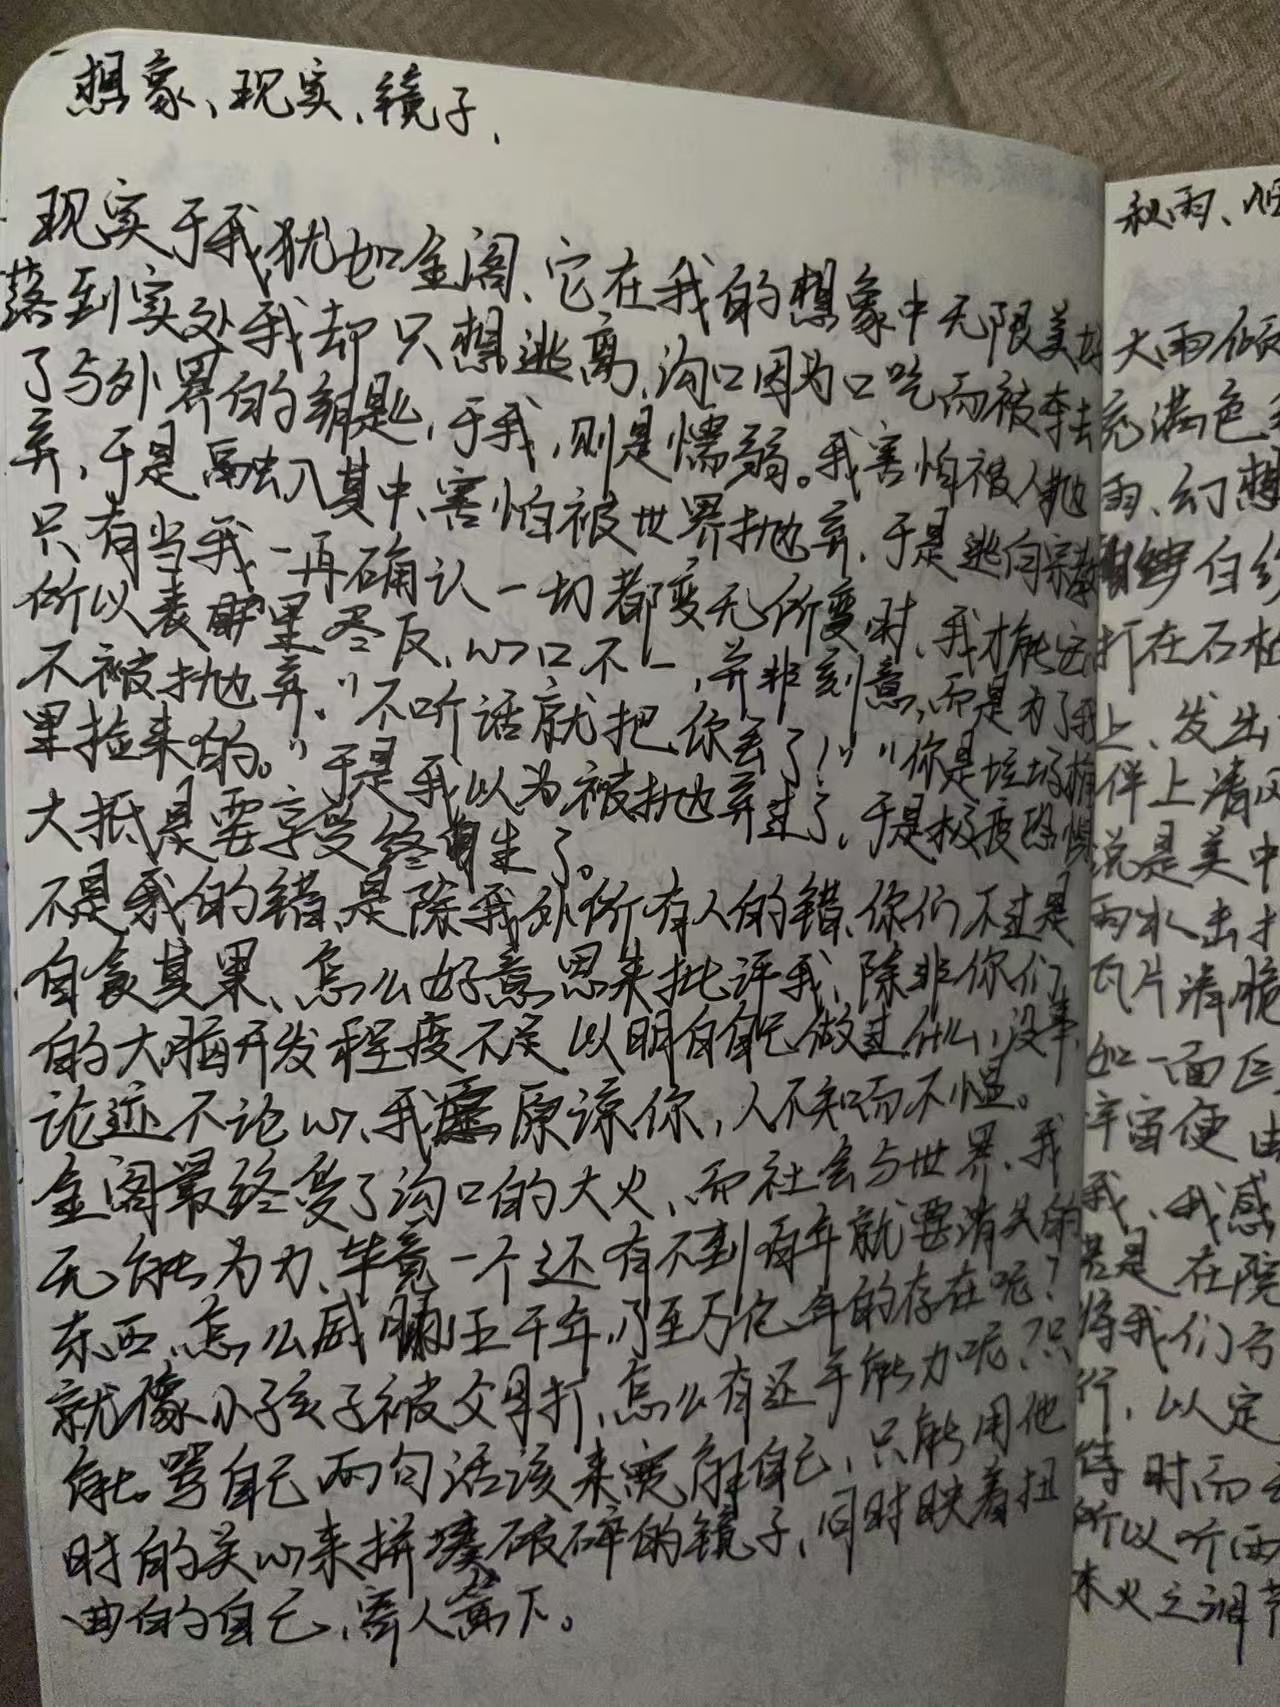 想象、现实、镜子、
现实于我犹如金阁、它在我的想象中无限美好
落到实处我却只想逃离、沟口因为口吃而被夺去
了与外界的钥匙，于我，则是懦弱。我害怕被人抛
弃，于是融入其中、害怕被世界抛弃，于是逃向宗教
只有当我一再确认一切都变无所变时、我才能
所以表里尽反、心口不一，并非刻意，而是为了我
不被抛弃。"不听话就把你丢了！""你是垃圾桶
里捡来的。"于是我以为被抛弃过了，于是极度恐惧
大抵是要享受终生了。
不是我的错、是除我外所有人的错、你们不过是
自食其果、怎么好意思来批评我、除非你们
的大脑开发程度不足以明白自己做过什么、没事、
论迹不论心、我愿原谅你，人不知而不愠。
金阁最终受了沟口的大火、而社会与世界、我
无能为力、毕竟一个还有不到百年就要消失的
东西、怎么威胁上千年，乃至万亿年的存在呢？
就像小孩子被父母打，怎么有还手能力呢，只
能骂自己两句活该来宽解自己，只能用他
时的关心来拼凑破碎的镜子，同时映着扭
曲的自己、寄人篱下。
秋雨、
大雨倾
充满色
雨、幻想
白纱
打在石
上、发出
伴上清风
说是美中
雨水击打
瓦片清脆
如一面巨
宇宙便由
我、我感
若是在院
将我们
行，以定
待时而
所以听雨
木火之调节